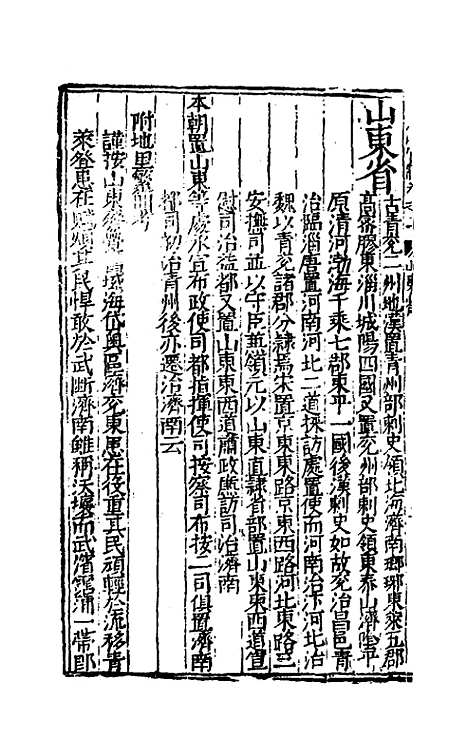 山東省
古青兖二州地漢置青州部刺史領北海濟南瑯琊東萊五郡
高密膠東淄川城陽四國又置兖州部刺史領東泰山濟隂平
原清河渤海千乘七郡東平一國後漢刺史如故兖治昌邑青
治臨淄唐置河南河北二道採訪處置使而河南治汴河北治
魏以青兖諸郡分隷焉宋置京東東路京東西路河北東路三
安撫司並以守臣兼領元以山東直隷省部置山東東西道宣
慰司治益都又置山東東西道肅政廉訪司治濟南
本朝置山東等處承宣布政使司都指揮使司按察司布按二司俱置濟南
都司初治青州後亦遷治濟南云
附地里
謹按山東海岱奥區濟兖東患在役重其民頑輕於流移青
萊登患在其民悍敢於武斷濟南雖稱天而武濱一帶即